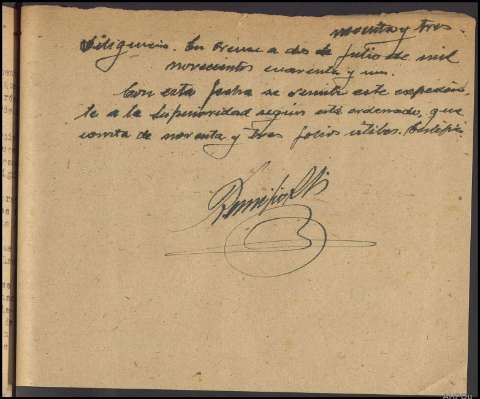 noventa y tres.
Diligencia. En Orense a dos de Julio de mil
novecientos cuarenta y uno.
Con esta fecha se remite este expedien-
te a la Superioridad según está ordenado, que
consta de noventa y tres folios útiles. Certifico.